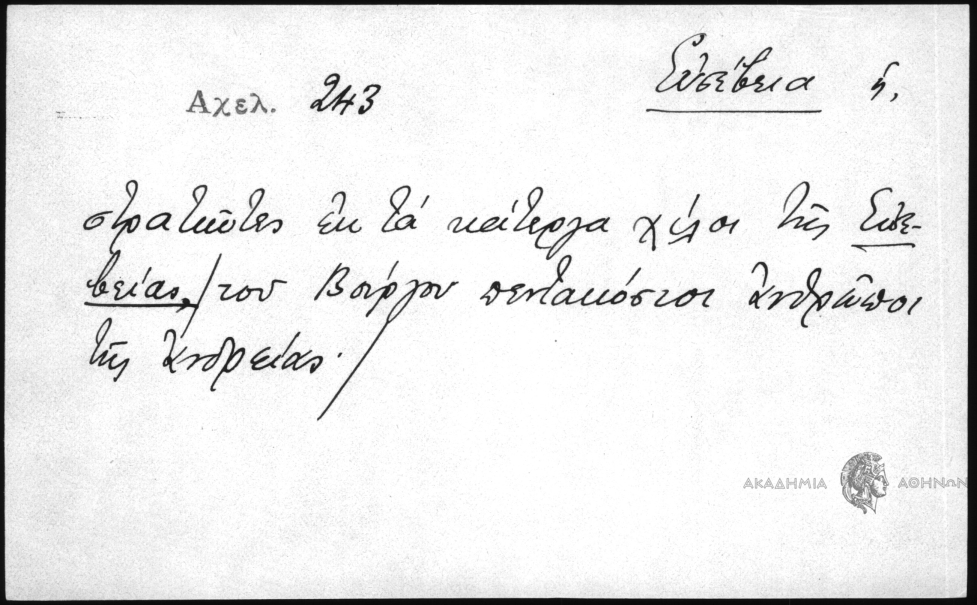 Εὐσέβεια ἡ,
Αχελ. 243
στρατιῶτες ἐκ τὰ κάτεργα χίλιοι τῆς Εὐσε-
βείας, / του Βούργου πεντακόσιοι ἄνθρωποι
τῆς ἀνδρείας. /
ΑΚΑΔΗΜΙΑ ΑΘΗΝΩΝ